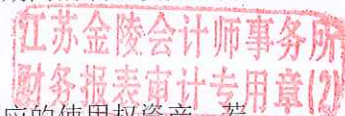 江苏金陵会计师事务所
财务报表审计专用章(2)
应的使用权资产 若